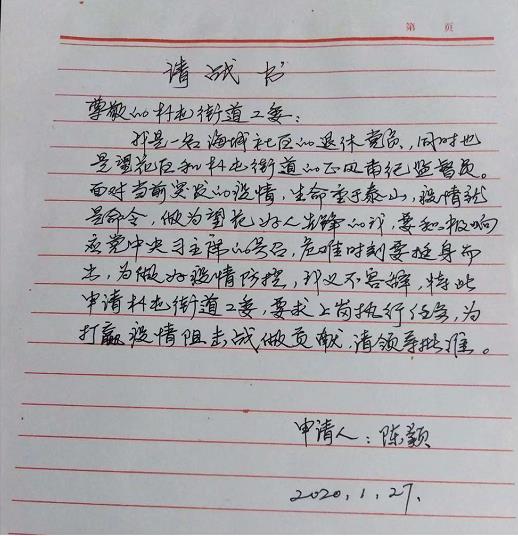 第 页
请战书
尊敬的朴屯街道工委:
我是一名海城社区的退休党员,同时也
是望花区和朴屯街道的正风肃纪监督员。
面对当前突发的疫情,生命重于泰山,疫情就
是命令,做为望花好人先锋的我,要积极响
应党中央习主席的号召,危难时刻要挺身而
出,为做好疫情防控,我义不容辞,特此
申请朴屯街道工委,要求上岗执行任务,为
打赢疫情阻击战做贡献,请领导批准。
申请人:陈颖
2020.1.27.